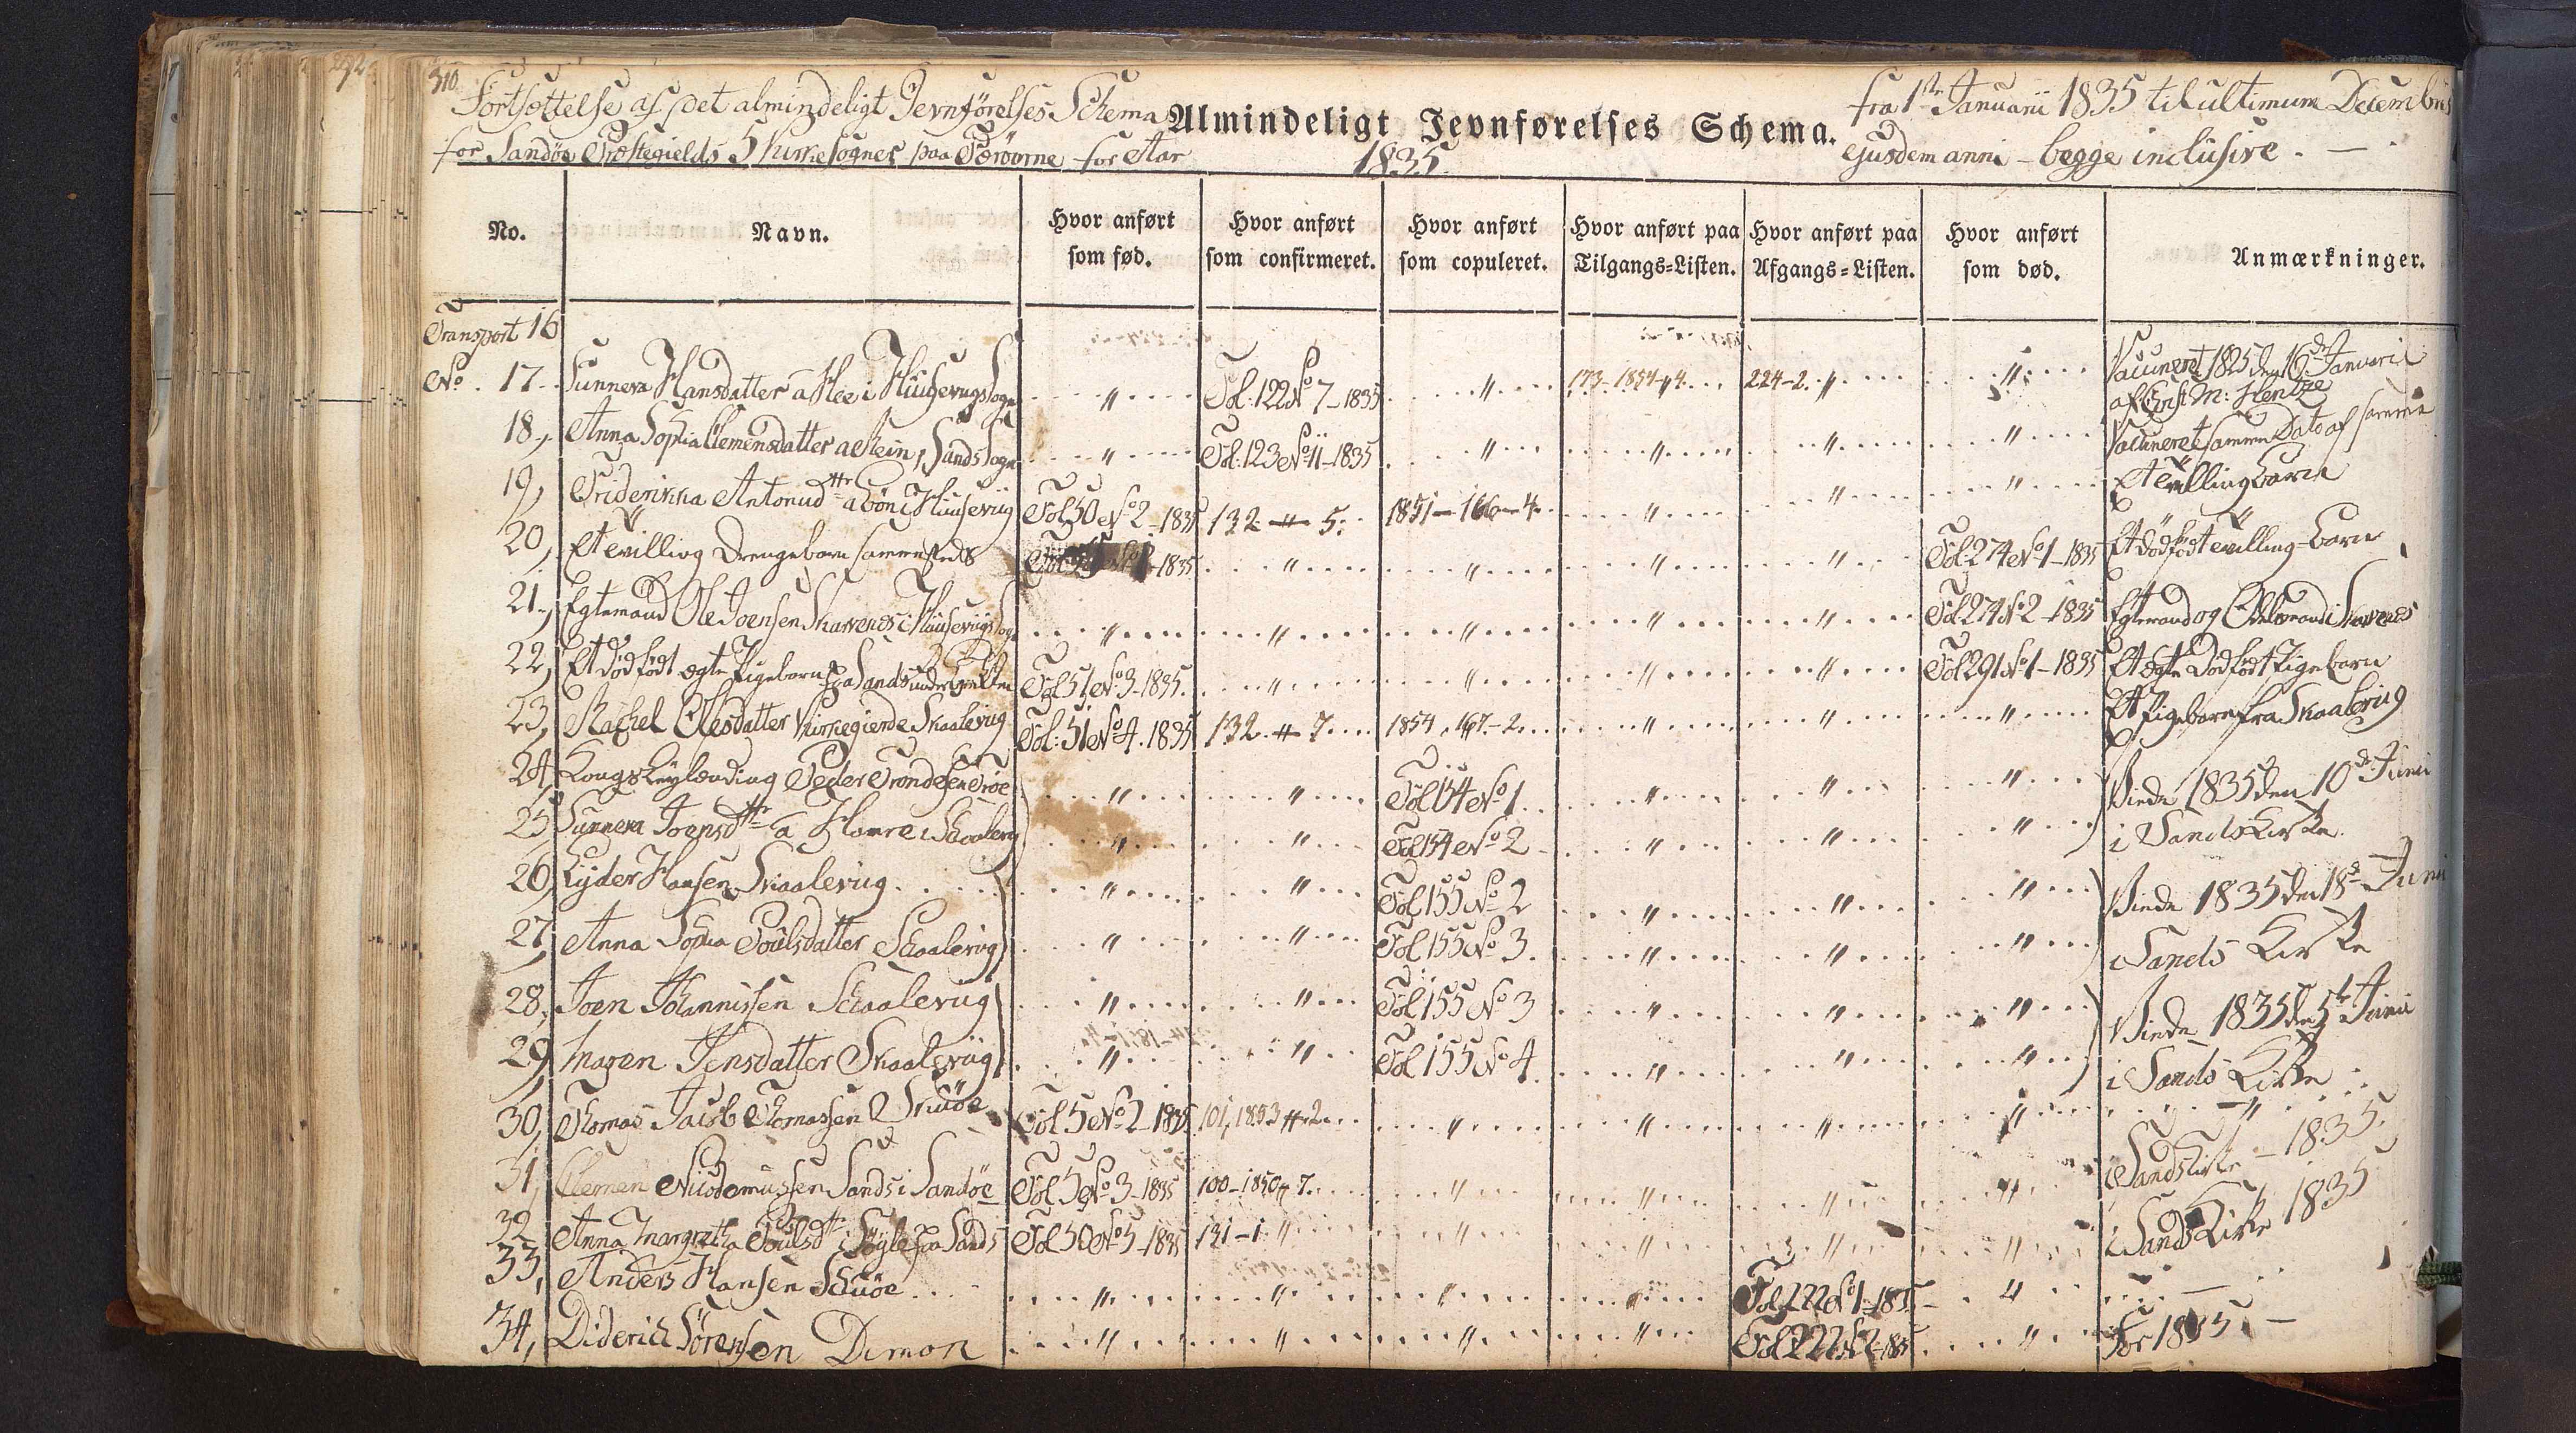 310.
Fortsættelse af det almindeligt Jevnførelses Schema
for Sandöe Præstegields 5 Kirkesogner paa Færöerne for Aar
Almindeligt Jevnførelses Schema.
1835.
fra 1ste Januarii 1835 til ultimum Decembris
ejusdem anni – begge inclusive. –
No. Navn. Hvor anført som fød. Hvor anført som confirmeret. Hvor anført som copuleret. Hvor anført paa Tilgangs=Listen. Hvor anført paa Afgangs=Listen. Hvor anført som død. Anmærkninger.
Transport 16
No. 17. Sunneva Hansdatter a i Huusevigs Sogn " Fol: 122 No 7 – 1835 " 173–1854–4 224–2. " " Vaccineret 1825 den 16de Januarii
af M: Hentze
18, Anna Sophia Clemensdatter a Stein, Sands Sogn " Fol: 123 No 11–1835 " " " " Vaccineret samme Dato af samme
19, Friderikka Antonud a Bön i Huusevig Fol 50 No 2–1835 132 – 5. 1851–166–4. " " " Et Tvilling Barn
20, Et Tvilling Drengebarn sammesteds 1835 " " " " Fol 274 No 1–1835 Et dödfödt Tvilling-Barn
21., Egtemand Ole Joensen Skarvenes i Huusevigs Sogn " " " " " Fol 274 No 2–1835 Egtemand og i Skarvenes
22, Et dödfödt ægte Pigebarn fra Sands Fol 51 No 3–1835. " " " " Fol 291 No 1–1835 Et ægte Dödfödt Pigebarn
23, Rachel Olesdatter Kirkegierde Skaalevig Fol: 51 No 4. 1835 132 – 7 1854, 167–2. " " " Et Pigebarn fra Skaalevig
24, Kongs Peder Trondesen Tröe " " Fol 154 No 1 " " " Viede 1835 den 10de Junii
25 Sunneva Joensdtr a Hamre i Skaalevig " " Fol 154 No 2 " " " i Sands Kirke
26, Lyder Hansen Skaalevig " " Fol 155 No 2 " " " Viede 1835 den 18de Junii
27, Anna Sophia Poulsdatter Skaalevig " " Fol 155 No 3. " " " i Sands Kirke
28, Joen Johannissen Skaalevig " " Fol 155 No 3 " " " Viede 1835 den 5te Junii
29, Maren Jensdatter Skaalevig " " Fol 155 No 4 " " " i Sands Kirke
30, Thomas Jacob Thomassen Skuöe Fol 5 No 2–1835 101, 1853 – 2 " " " " "
31, Clemen Nicodemussen Sands i Sandöe Fol 5 No 3–1835 100–1850–7. " " " " i Sands Kirke – 1835.
32, Anna Margretha Poulsdtr i fra Sands Fol 50 No 5–1835 131–1 " " " " " i Sands Kirke 1835
33, Anders Hansen Skuöe " " " " Fol 222 No 1–1835 "
34, Diderich Sörensen Dimon " " " " Fol 222 No 2–1835 " For 1835. –